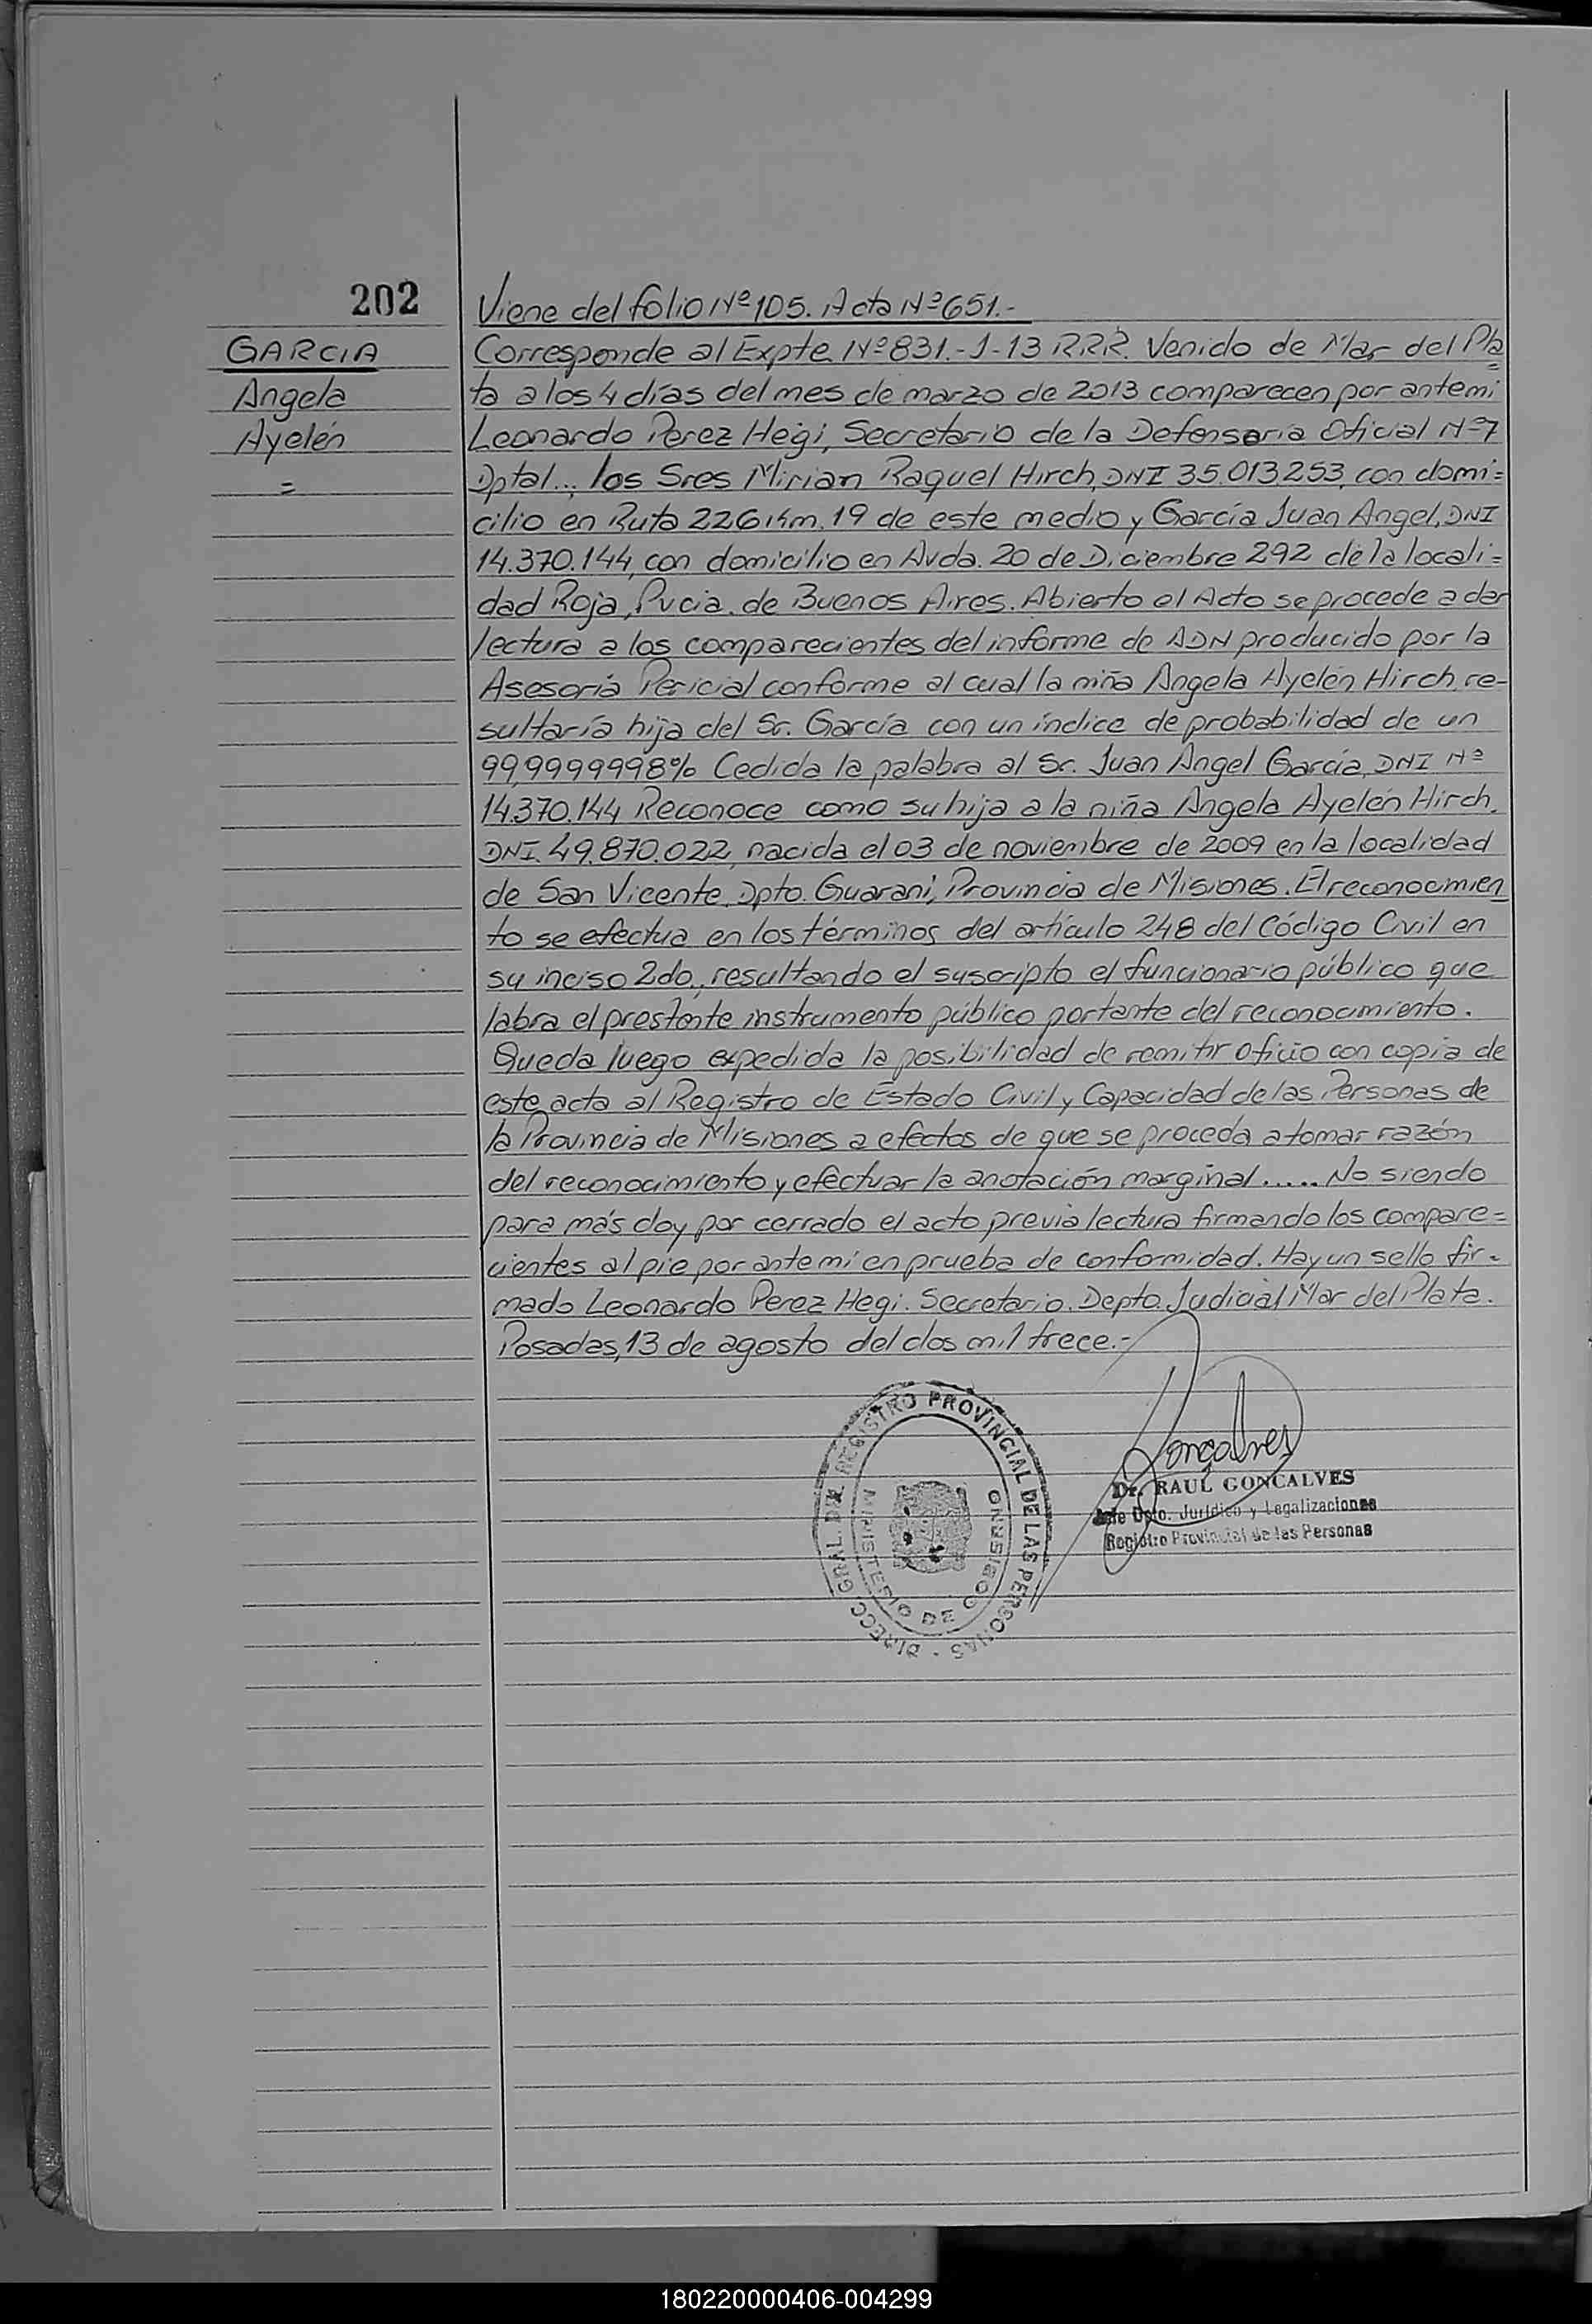 202
GARCIA
Angela
Ayelén
=
Viene del folio Nº 105. Acta Nº 651.-
Corresponde al Expte. Nº 831.-J-13 RRR. Venido de Mar del Pla
ta a los 4 días del mes de marzo de 2013 comparecen por antemi
Leonardo Perez Hegi, Secretario de la Defensaria Oficial Nº7
Dptal... los Sres Mirian Raquel Hirch, DNI 35.013.253, con domi=
cilio en Ruta 226 Km. 19 de este medio y García Juan Angel, DNI
14.370.144, con domicilio en Avda. 20 de Diciembre 292 de la locali=
dad Roja, Pvcia. de Buenos Aires. Abierto el Acto se procede a dar
lectura a los comparecientes del informe de ADN producido por la
Asesoría Pericial conforme al cual la niña Angela Ayelén Hirch re-
sultaría hija del Sr. García con un índice de probabilidad de un
99,9999998% Cedida la palabra al Sr. Juan Angel García, DNI Nº
14.370.144 Reconoce como su hija a la niña Angela Ayelén Hirch,
DNI. 49.870.022, nacida el 03 de noviembre de 2009 en la localidad
de San Vicente, Dpto. Guaraní, Provincia de Misiones. El reconocimien
to se efectua en los términos del artículo 248 del Código Civil en
su inciso 2do., resultando el suscripto el funcionario público que
labra el prestente instrumento público portante del reconocimiento.
Queda luego expedida la posibilidad de remitir oficio con copia de
este acta al Registro de Estado Civil y Capacidad de las Personas de
la Provincia de Misiones a efectos de que se proceda a tomar razón
del reconocimiento y efectuar la anotación marginal ..... No siendo
para más doy por cerrado el acto previa lectura firmando los compare=
cientes al pie por ante mí en prueba de conformidad. Hay un sello fir-
mado Leonardo Perez Hegi. Secretario. Depto. Judicial Mar del Plata.
Posadas, 13 de agosto del dos mil trece.-
DIRECC. GRAL. DEL REGISTRO PROVINCIAL DE LAS PERSONAS
MINISTERIO DE GOBIERNO
Goncalves
Dr. RAUL GONCALVES
Jefe Dpto. Jurídico y Legalizaciones
Registro Provincial de las Personas
180220000406-004299